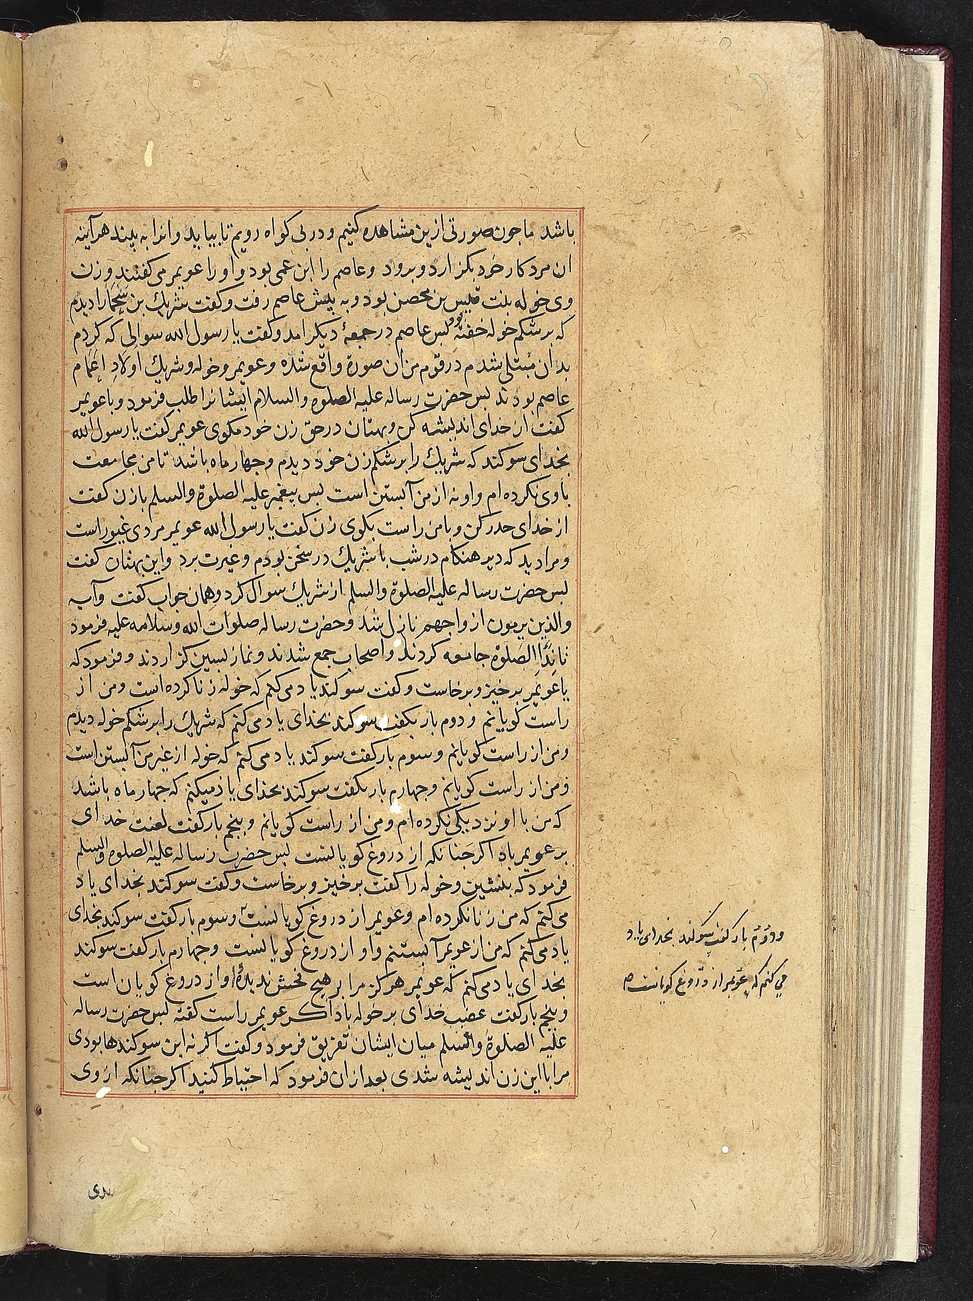 باشد ما چون صورتی ازین مشاهده کنیم و در پی کواه رویم تا بیاید و انرا به بیند هرآینه
ان مرد کار خود بکزارد و برود و عاصم را ابن عمی بود و او را عویمر می کفتند و زن
وی خوله بنت قیس بن محصن بود و به پیش عاصم رفت و کفت شریك بن سحما را دیدم
که بر شکم خوله خفته و پس عاصم در جمعهٔ دیکر امد و کفت یا رسول الله سوالی که کردم
بدان مبتلی شدم در قوم من ان صورة واقع شده و عویمر و خوله و شریك اولاد اعمام
عاصم بودند پس حضرت رساله علیه الصلوة والسلام ایشانرا طلب فرمود و با عویمر
کفت از خدای اندیشه کن و بهتان در حق زن خود مکوی عویمر کفت یا رسول الله
بخدای سوکند که شریك را بر شکم زن خود دیدم و چهار ماه باشد تا من مجامعت
با وی نکرده ام و او نه از من آبستن است پس پیغمبر علیه الصلوة والسلم با زن کفت
از خدای حذر کن و با من راست بکوی زن کفت یا رسول الله عویمر مردی غیور است
و مرا دید که دیر هنکام در شب با شریك در سخن بودم و غیرت برد و این بهتان کفت
پس حضرت رساله علیه الصلوة والسلم از شریك سوال کرد و همان جواب کفت و آیه
والذین یرمون ازواجهم نازل شد و حضرت رساله صلوات الله وسلامه علیه فرمود
تا ندا الصلوة جامعه کردند و اصحاب جمع شدند و نماز پسین کزاردند و فرمود که
یا عویمر برخیز و برخاست و کفت سوکند یاد می کنم که خوله زنا کرده است و من از
راست کویانم و دوم بار بکفت سوکند بخدای یاد می کنم که شریك را بر شکم خوله دیدم
و من از راست کویانم و سوم بار کفت سوکند یاد می کنم که خوله از غیر من آبستن است
و من از راست کویانم و چهارم بار بکفت سوکند بخدای یاد میکنم که چهار ماه باشد
که من با او نزدیکی نکرده ام و من از راست کویانم و پنجم بار کفت لعنت خدای
بر عویمر باد اکر چنانکه از دروغ کویانست پس حضرت رساله علیه الصلوة والسلم
فرمود که بنشین و خوله را کفت برخیز و برخاست و کفت سوکند بخدای یاد
می کنم که من زنا نکرده ام و عویمر از دروغ کویانست و سوم بار کفت سوکند بخدای
یاد می کنم که من از عویمر آبستنم و او از دروغ کویانست و چهارم بار کفت سوکند
بخدای یاد می کنم که عویمر هرکز مرا بر هیچ فحش ندیده و او از دروغ کویان است
و پنجم بار کفت غضب خدای بر خوله باد اکر عویمر راست کفته پس حضرت رساله
علیه الصلوة والسلم میان ایشان تفریق فرمود و کفت اکر نه این سوکندها بودی
مرا با این زن اندیشه شدی بعد ازان فرمود که احتیاط کنید اکر چنانکه از وی
و دوم بار کفت سوکند بخدای یاد
می کنم که عویمر از دروغ کویانست ص